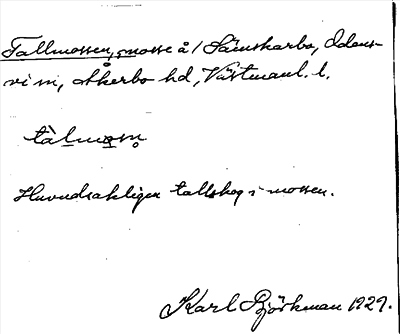 Tallmossen, mosse å / Sämskarbo, Odens-
vi sn, Åkerbo hd, Västmanl. l.
tàlmosn
Huvudsakligen tallskog i mossen.
Karl Björkman 1929.